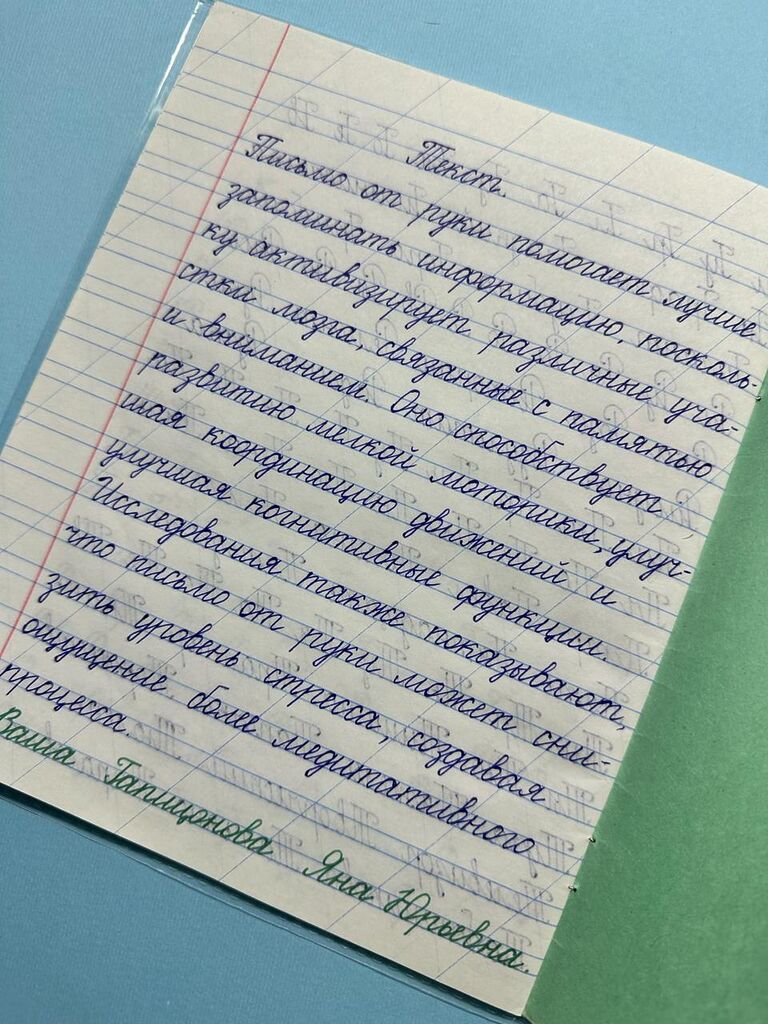 Текст.
Письмо от руки помогает лучше
запоминать информацию, посколь-
ку активизирует различные уча-
стки мозга, связанные с памятью
и вниманием. Оно способствует
развитию мелкой моторики, улуч-
шая координацию движений и
улучшая когнитивные функции.
Исследования также показывают,
что письмо от руки может сни-
зить уровень стресса, создавая
ощущение более медитативного
процесса.
Ваша Гапишонова Яна Юрьевна.